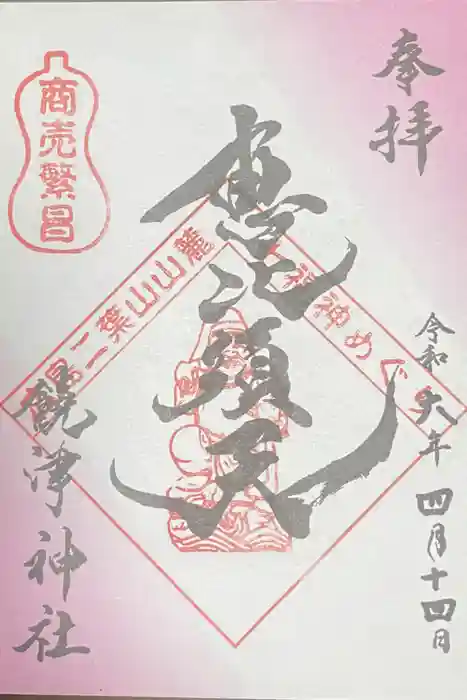 奉拝
令和六年
四月十四日
恵比須天
商売繁昌
島二葉山山麓
福神めぐ
饒津神社